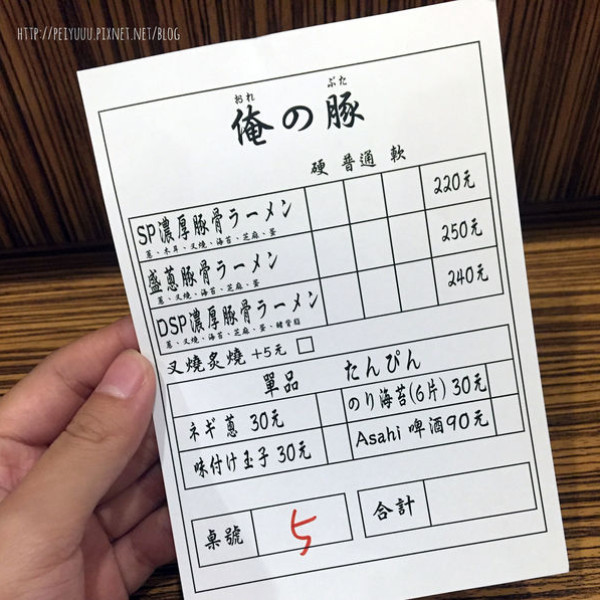 HTTP://PEIYUUU.PIXNET.NET/BLOG
おれ ぶた
俺の豚
硬 普通 軟
SP濃厚豚骨ラーメン 220元
蔥、木耳、叉燒、海苔、芝麻、蛋
盛蔥豚骨ラーメン 250元
蔥、叉燒、海苔、芝麻、蛋
DSP濃厚豚骨ラーメン 240元
蔥、叉燒、海苔、芝麻、蛋、豬背脂
叉燒炙燒 +5元 □
單品 たんぴん
ネギ蔥 30元 のり海苔(6片) 30元
味付け玉子 30元 Asahi 啤酒 90元
桌號 5 合計